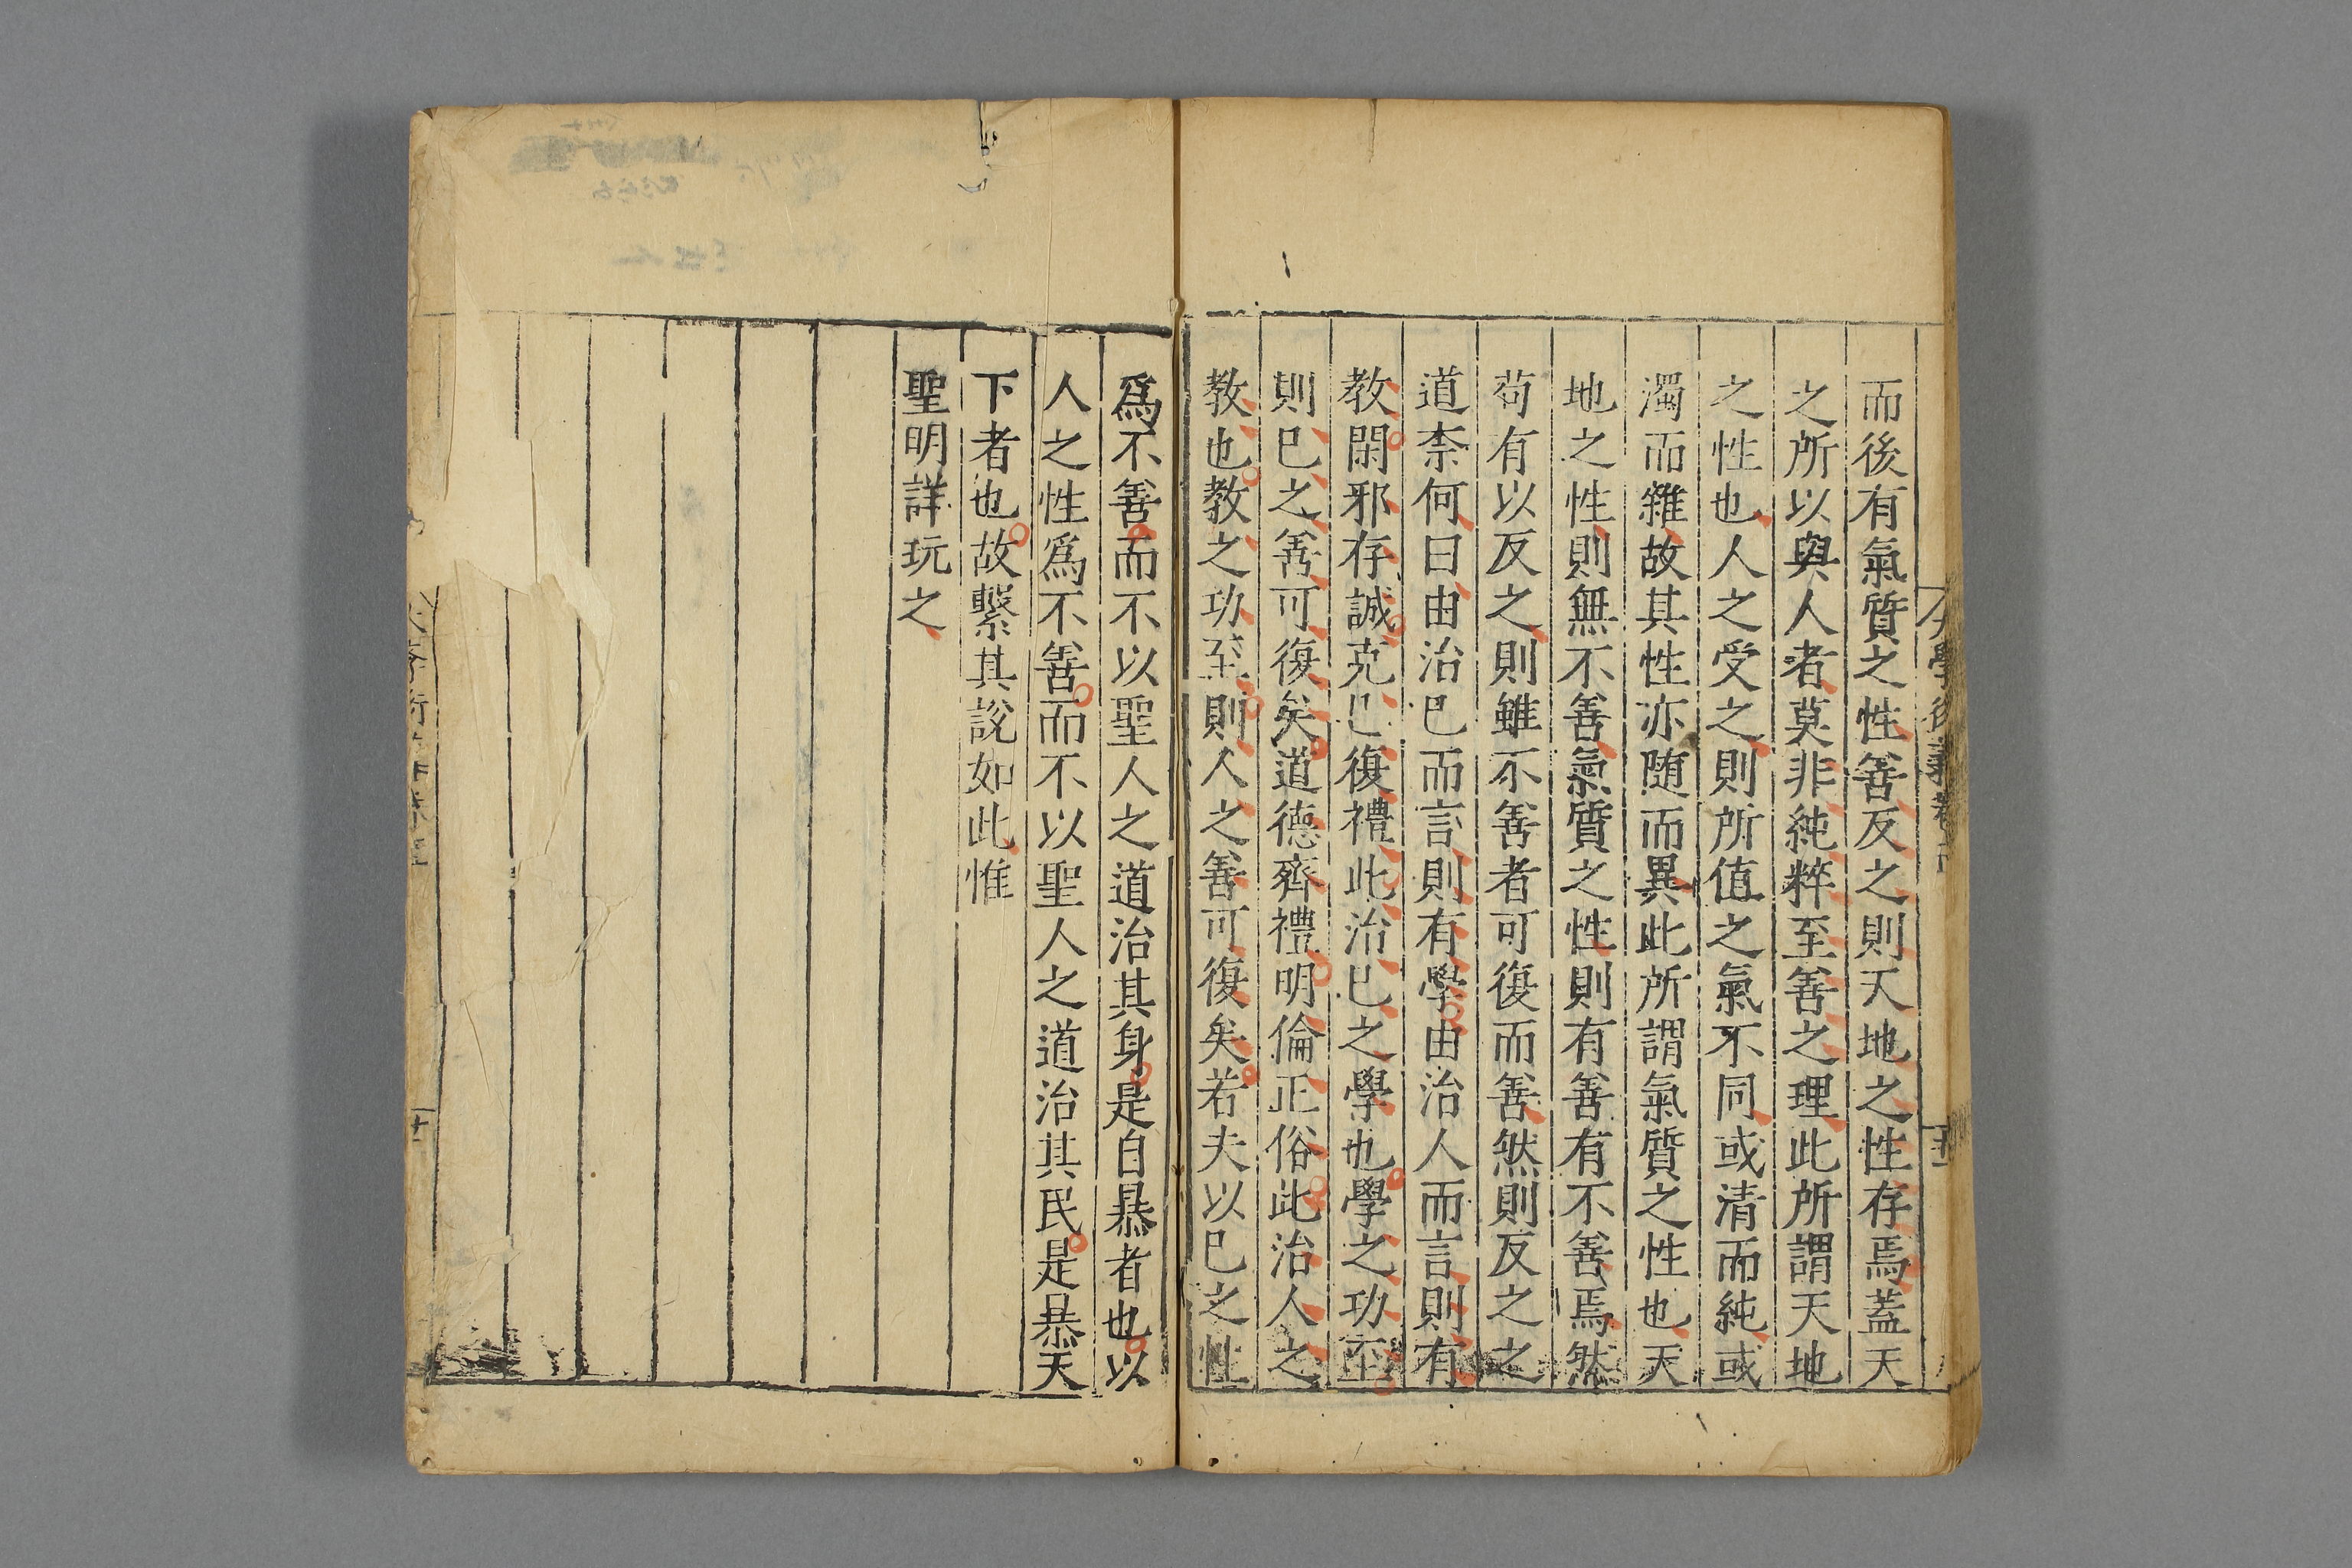 而後有氣質之性善反之則天地之性存焉蓋天
之所以與人者莫非純粹至善之理此所謂天地
之性也人之受之則所值之氣不同或清而純或
濁而雜故其性亦随而異此所謂氣質之性也天
地之性則無不善氣質之性則有善有不善焉然
苟有以反之則雖不善者可復而善然則反之之
道柰何曰由治已而言則有學由治人而言則有
教閑邪存誠克已復禮此治已之學也學之功至
則已之善可復矣道德齊禮明倫正俗此治人之
教也教之功至則人之善可復矣若夫以已之性
爲不善而不以聖人之道治其身是自㬥者也以
人之性爲不善而不以聖人之道治其民是㬥天
下者也故繫其說如此惟
聖明詳玩之